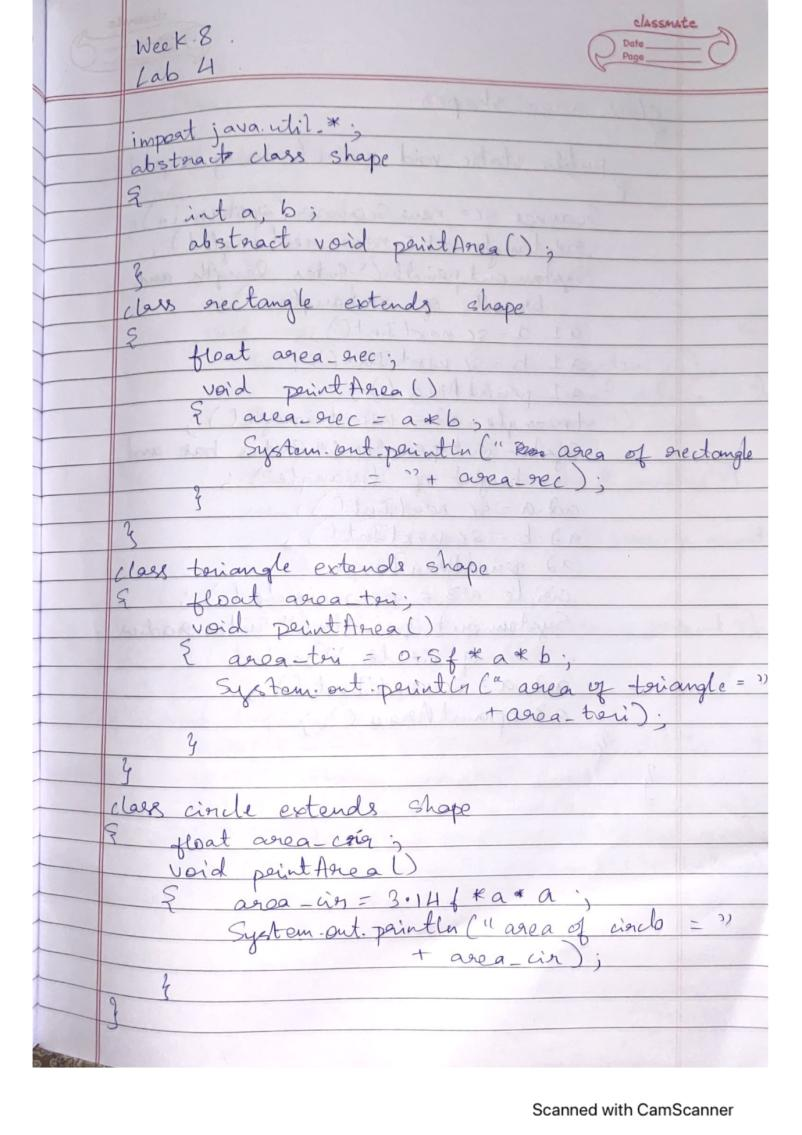 classmate
Date
Page
Week 8
Lab 4
import java.util.*;
abstract class shape
{
int a, b;
abstract void printArea();
}
class rectangle extends shape
{
float area_rec;
void printArea()
{ area_rec = a*b;
System.out.println(" area of rectangle
= "+ area_rec);
}
}
class triangle extends shape
{ float area_tri;
void printArea()
{ area_tri = 0.5f * a * b;
System.out.println(" area of triangle = "
+ area_tri);
}
}
class circle extends shape
{
float area_cir;
void printArea()
{ area_cir = 3.14f *a* a;
System.out.println(" area of circle = "
+ area_cir);
}
}
Scanned with CamScanner